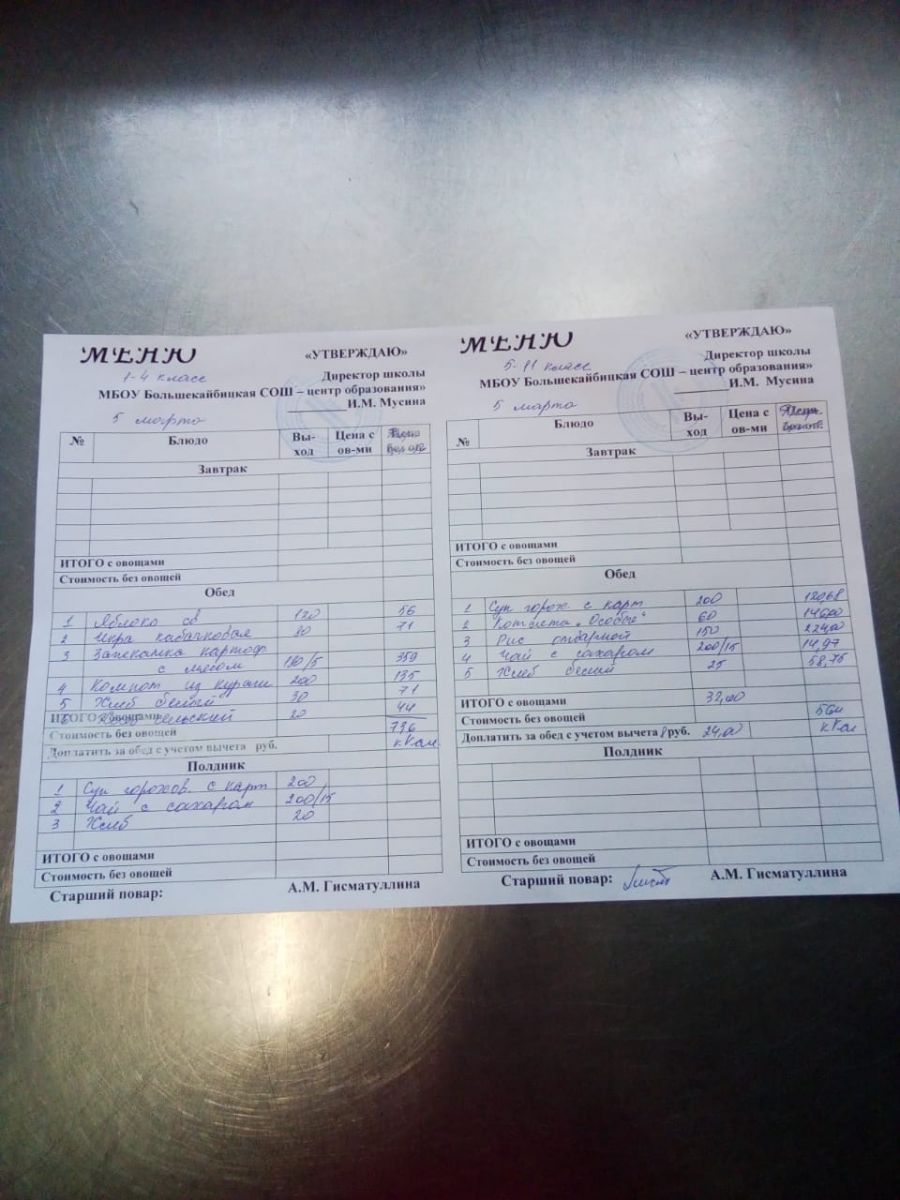 МЕНЮ «УТВЕРЖДАЮ»
1-4 класс Директор школы
МБОУ Большекайбицкая СОШ – центр образования»
И.М. Мусина
5 марта
№ Блюдо Вы-ход Цена с ов-ми
Завтрак
ИТОГО с овощами
Стоимость без овощей
Обед
1 Яблоко св 120 56
2 Икра кабачковая 30 71
3 Запеканка картоф
с мясом 180/5 359
4 Компот из кураги 200 135
5 Хлеб белый 30 71
6 сельский 20 44
ИТОГО с овощами
Стоимость без овощей 736
Доплатить за обед с учетом вычета руб. кКал
Полдник
1 Суп горохов. с карт 200
2 Чай с сахаром 200/15
3 Хлеб 20
ИТОГО с овощами
Стоимость без овощей
Старший повар: А.М. Гисматуллина
МЕНЮ «УТВЕРЖДАЮ»
5-11 класс Директор школы
МБОУ Большекайбицкая СОШ – центр образования»
И.М. Мусина
5 марта
№ Блюдо Вы-ход Цена с ов-ми
Завтрак
ИТОГО с овощами
Стоимость без овощей
Обед
1 Суп горох. с карт. 200 120,68
2 Котлета „Особые" 60
3 Рис отварной 150
4 Чай с сахаром 200/15 14,97
5 Хлеб белый 25 58,75
ИТОГО с овощами 32,00
Стоимость без овощей 564
Доплатить за обед с учетом вычета 8 руб. 24,00 кКал
Полдник
ИТОГО с овощами
Стоимость без овощей
Старший повар: А.М. Гисматуллина